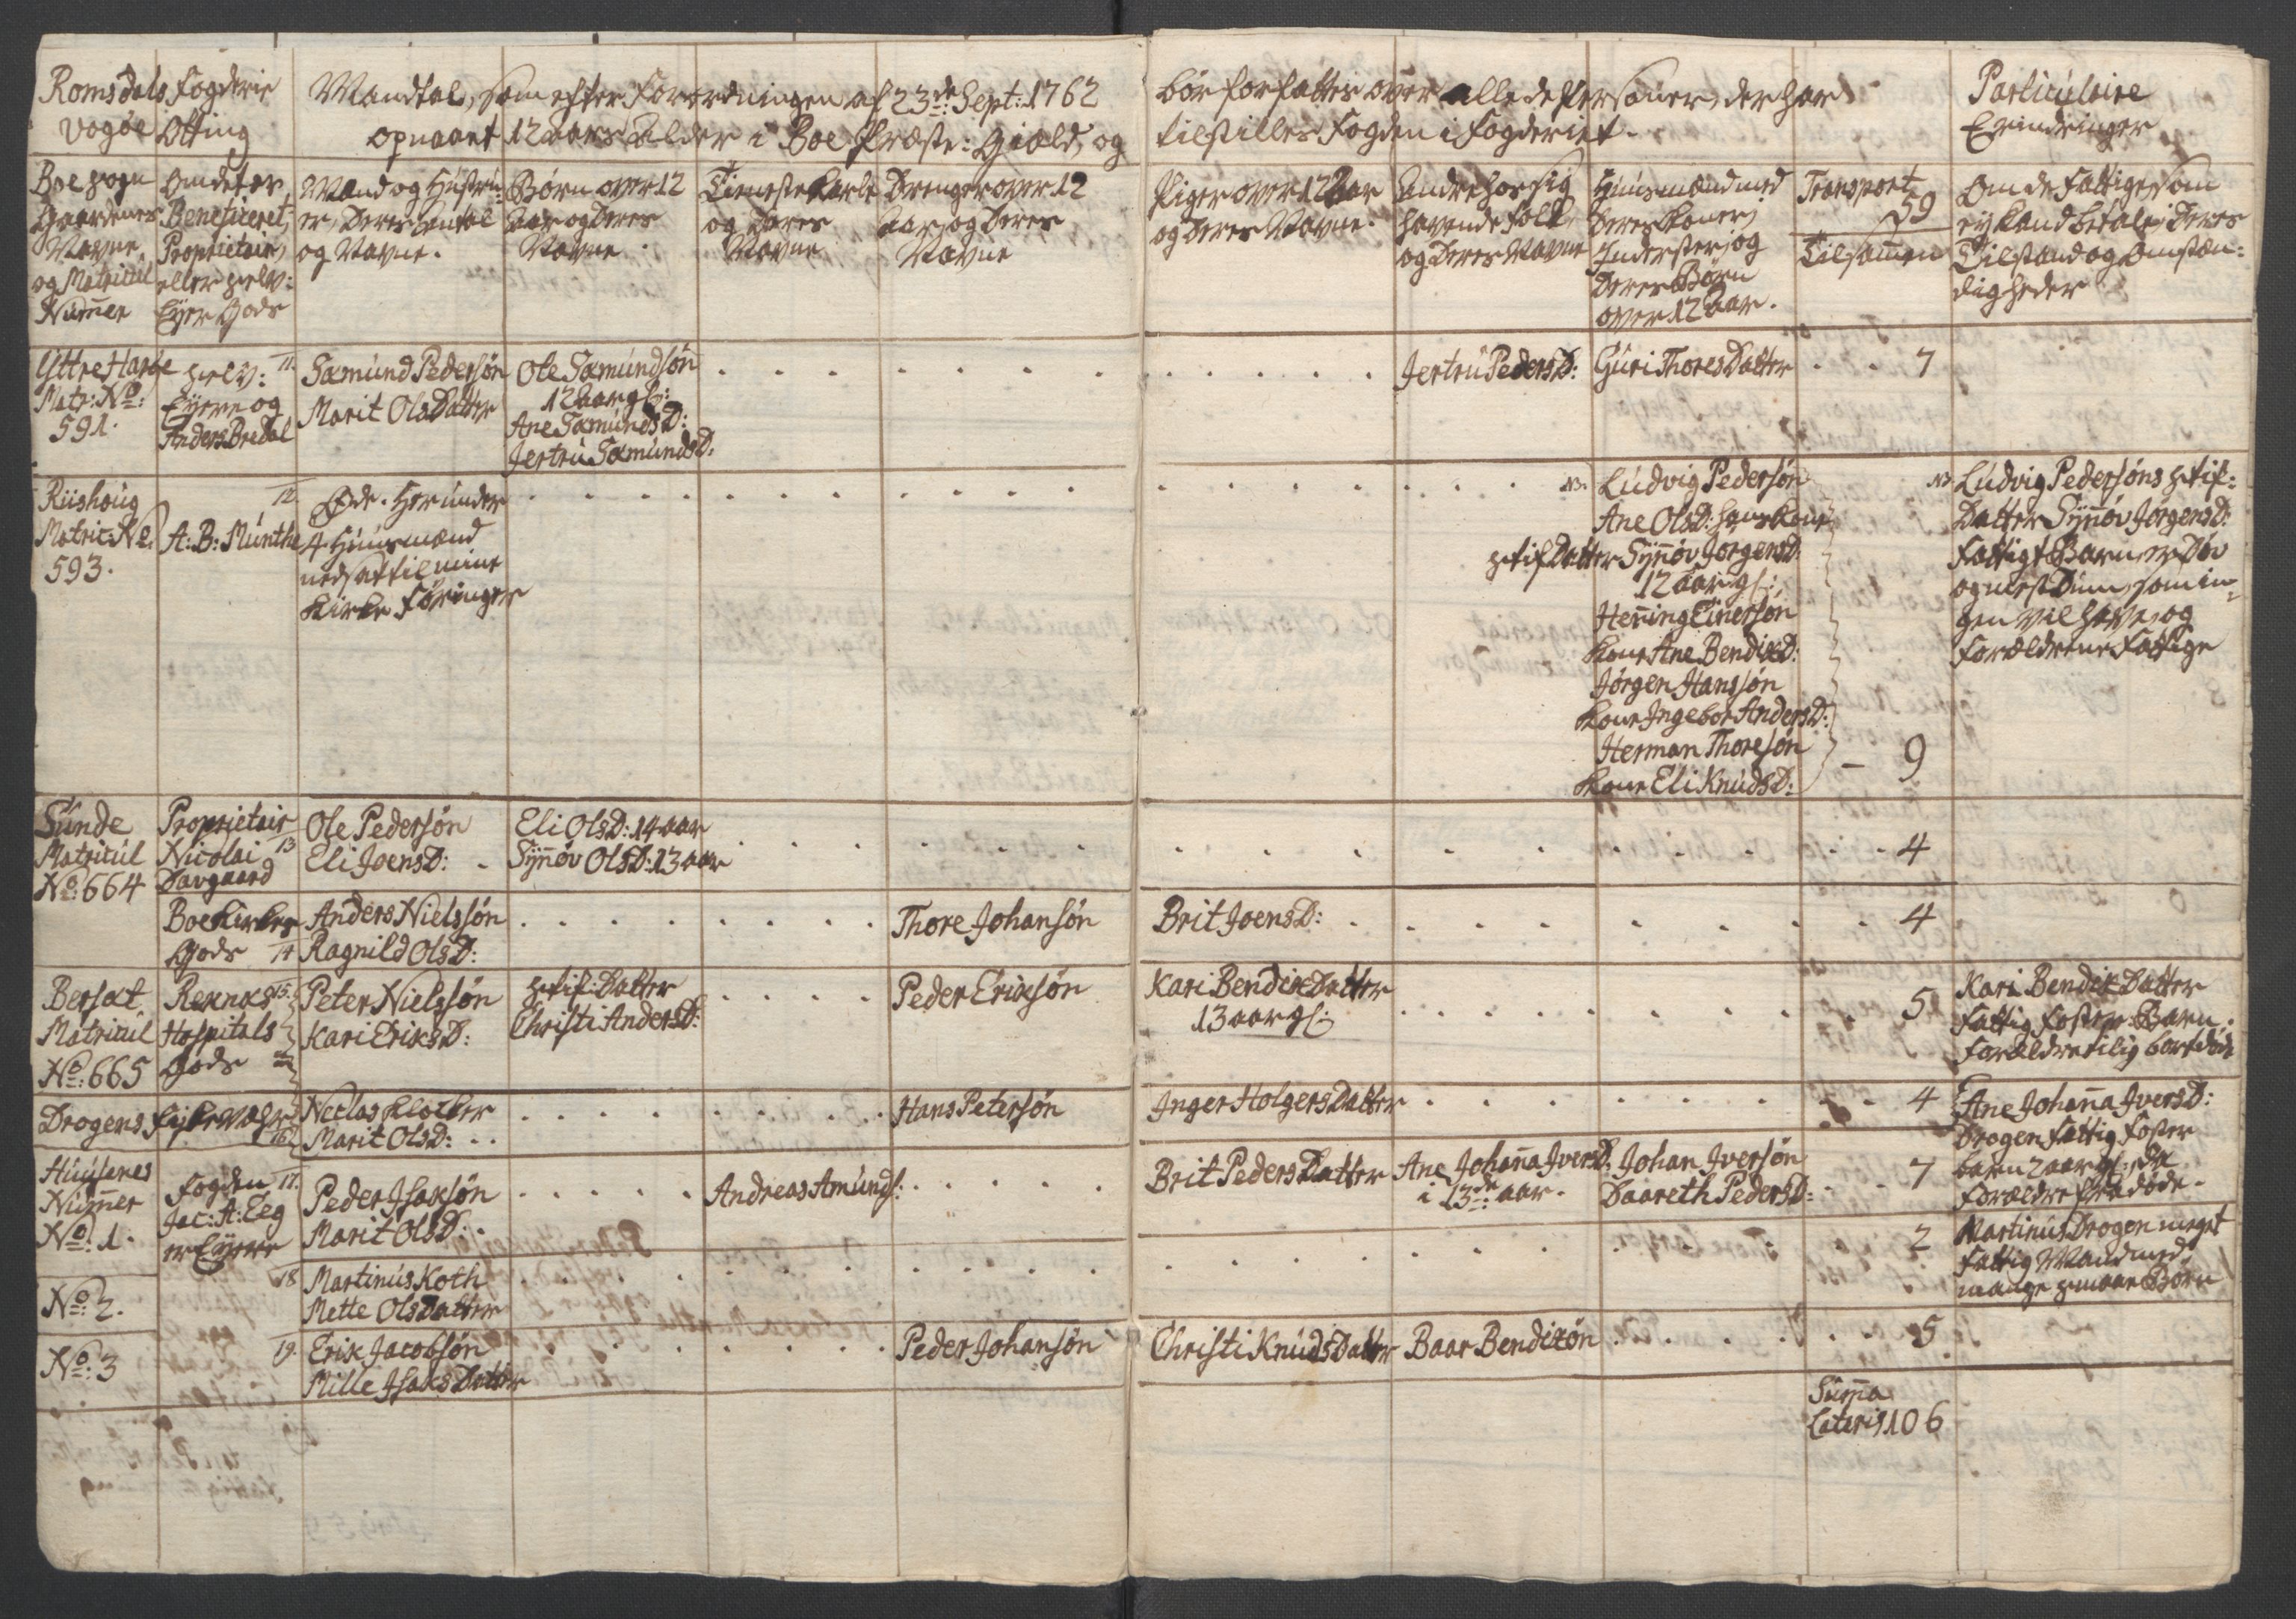 Romsdals Fogderie
Vogøe Otting
Mandtal, som efter Forordningen af 23de Sept: 1762
opnaaet 12 aars Alder i Boe Præste: Gield, og
bør forfattes over alle de Personer, der har
tilstilles Fogden i Fogderiet.
Particulaire
Erindringer
Boe Sogn
Gaardenes
Navne
og Matricul
Num̄er
Om det er
Beneficeret,
Proprietair,
eller Selv:
Eyer Gods
Mænd og Hustru:
er, Deres Antal
og Navne.
Børn over 12
Aar og Deres
Navne.
Tieneste Karle
og Deres
Navne
Drenger over 12
Aar, og Deres
Navne
Piger over 12 Aar
og Deres Navne.
Andre hos sig
havende Folk
og Deres Navne
Huusmænd med
Deres Koner,
Inderster, og
Deres Børn
over 12 Aar.
Transport
59
Tilsam̄en
Om de Fattige, som
ey kand betale, Deres
Tilstand og Omstæn:
digheder
Yttre Harøe
Matr: No:
591.
Selv:
Eyere og
Anders Bredal
11.
Samund Pedersøn
Marit OlsDatter
Ole Samundsøn
12 aar gl:
Ane SamundsD:
Jertru SamundsD:
Jertru PedersD:
Guri ThoresDatter
7
Riishoug
Matric: No:
593.
A: B: Munthe
12.
Øde. Herunder
4 Huusmænd
nedsat til mine
Kirke Føringer
Ludvig Pedersøn
Ane OlsD: hans Kone
Stif Datter Syn̄øv JorgensD:
12 aar gl:
Hen̄ing Einersøn
Kone Ane BendixD:
Jørgen Hanssøn
Kone Ingebor AndersD:
Herman Thoresøn
Kone Eli KnudsD:
9
Ludvig Pedersøns Stif:
Datter Syn̄øv JorgensD:
Fattigt Barn, er Døv
og nest Dum, som in:
gen vil have, og
Forældrene Fattige
Sunde
Matricul
No: 664
Proprietair
Nicolai
Davgaard
13
Ole Pedersøn
Eli JoensD:
Eli OlsD: 14 aar
Syn̄øv OlsD: 13 aar
4
Boe Kirkes
Gods
14
Anders Nielssøn
Ragnild OlsD:
Thore Johansøn
Brit JoensD:
4
Bersæt
Matricul
No: 665
Reknes
Hospitals
Gods
15.
Peter Nielssøn
Kari EriksD:
Stif: Datter
Christi AndersD:
Peder Erixøn
Kari BendixDatter
13 aar gl:
5
Kari Bendix Datter
Fattig Foster: Barn.
Forældre tilig bortdøde
Drogens Fiske Vær
16
Neclas Klocker
Marit OlsD:
Hans Petersøn
Inger HolgersDatter
4
Ane Johan̄a IversD:
Drogen Fattig Foster
barn 2 aar gl: da
Forældre fradøde.
Huusenes
Num̄er
No: 1.
Fogden
Jac: A: Eeg
er Eyere
17.
Peder Isaksøn
Marit OlsD:
Andreas Amunds:
Brit PedersDatter
Ane Johan̄a IversD:
i 13de aar.
Johan Iversøn
Daareth PedersD:
7
No: 2.
18
Martinus Koth
Mette OlsDatter
2
Martinus Drogen meget
Fattig Mand med
mange smaae Børn
No: 3
19.
Erik Jacobsøn
Mille IsaksDatter
Peder Johansøn
Christi KnudsDatter
Baar Bendixøn
5
Sum̄a
Lateris 106